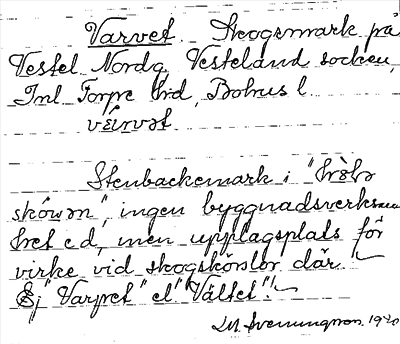 Varvet Skogsmark på
Vestel Nordg, Vesteland socken,
Inl Torpe hrd, Bohus l.
Stenbackemark i "
skówən", ingen byggnadsverksam
het e d, men upplagsplats för
virke vid skogskörslor där.
Ej "Varpet" el "Vältet"!
1940